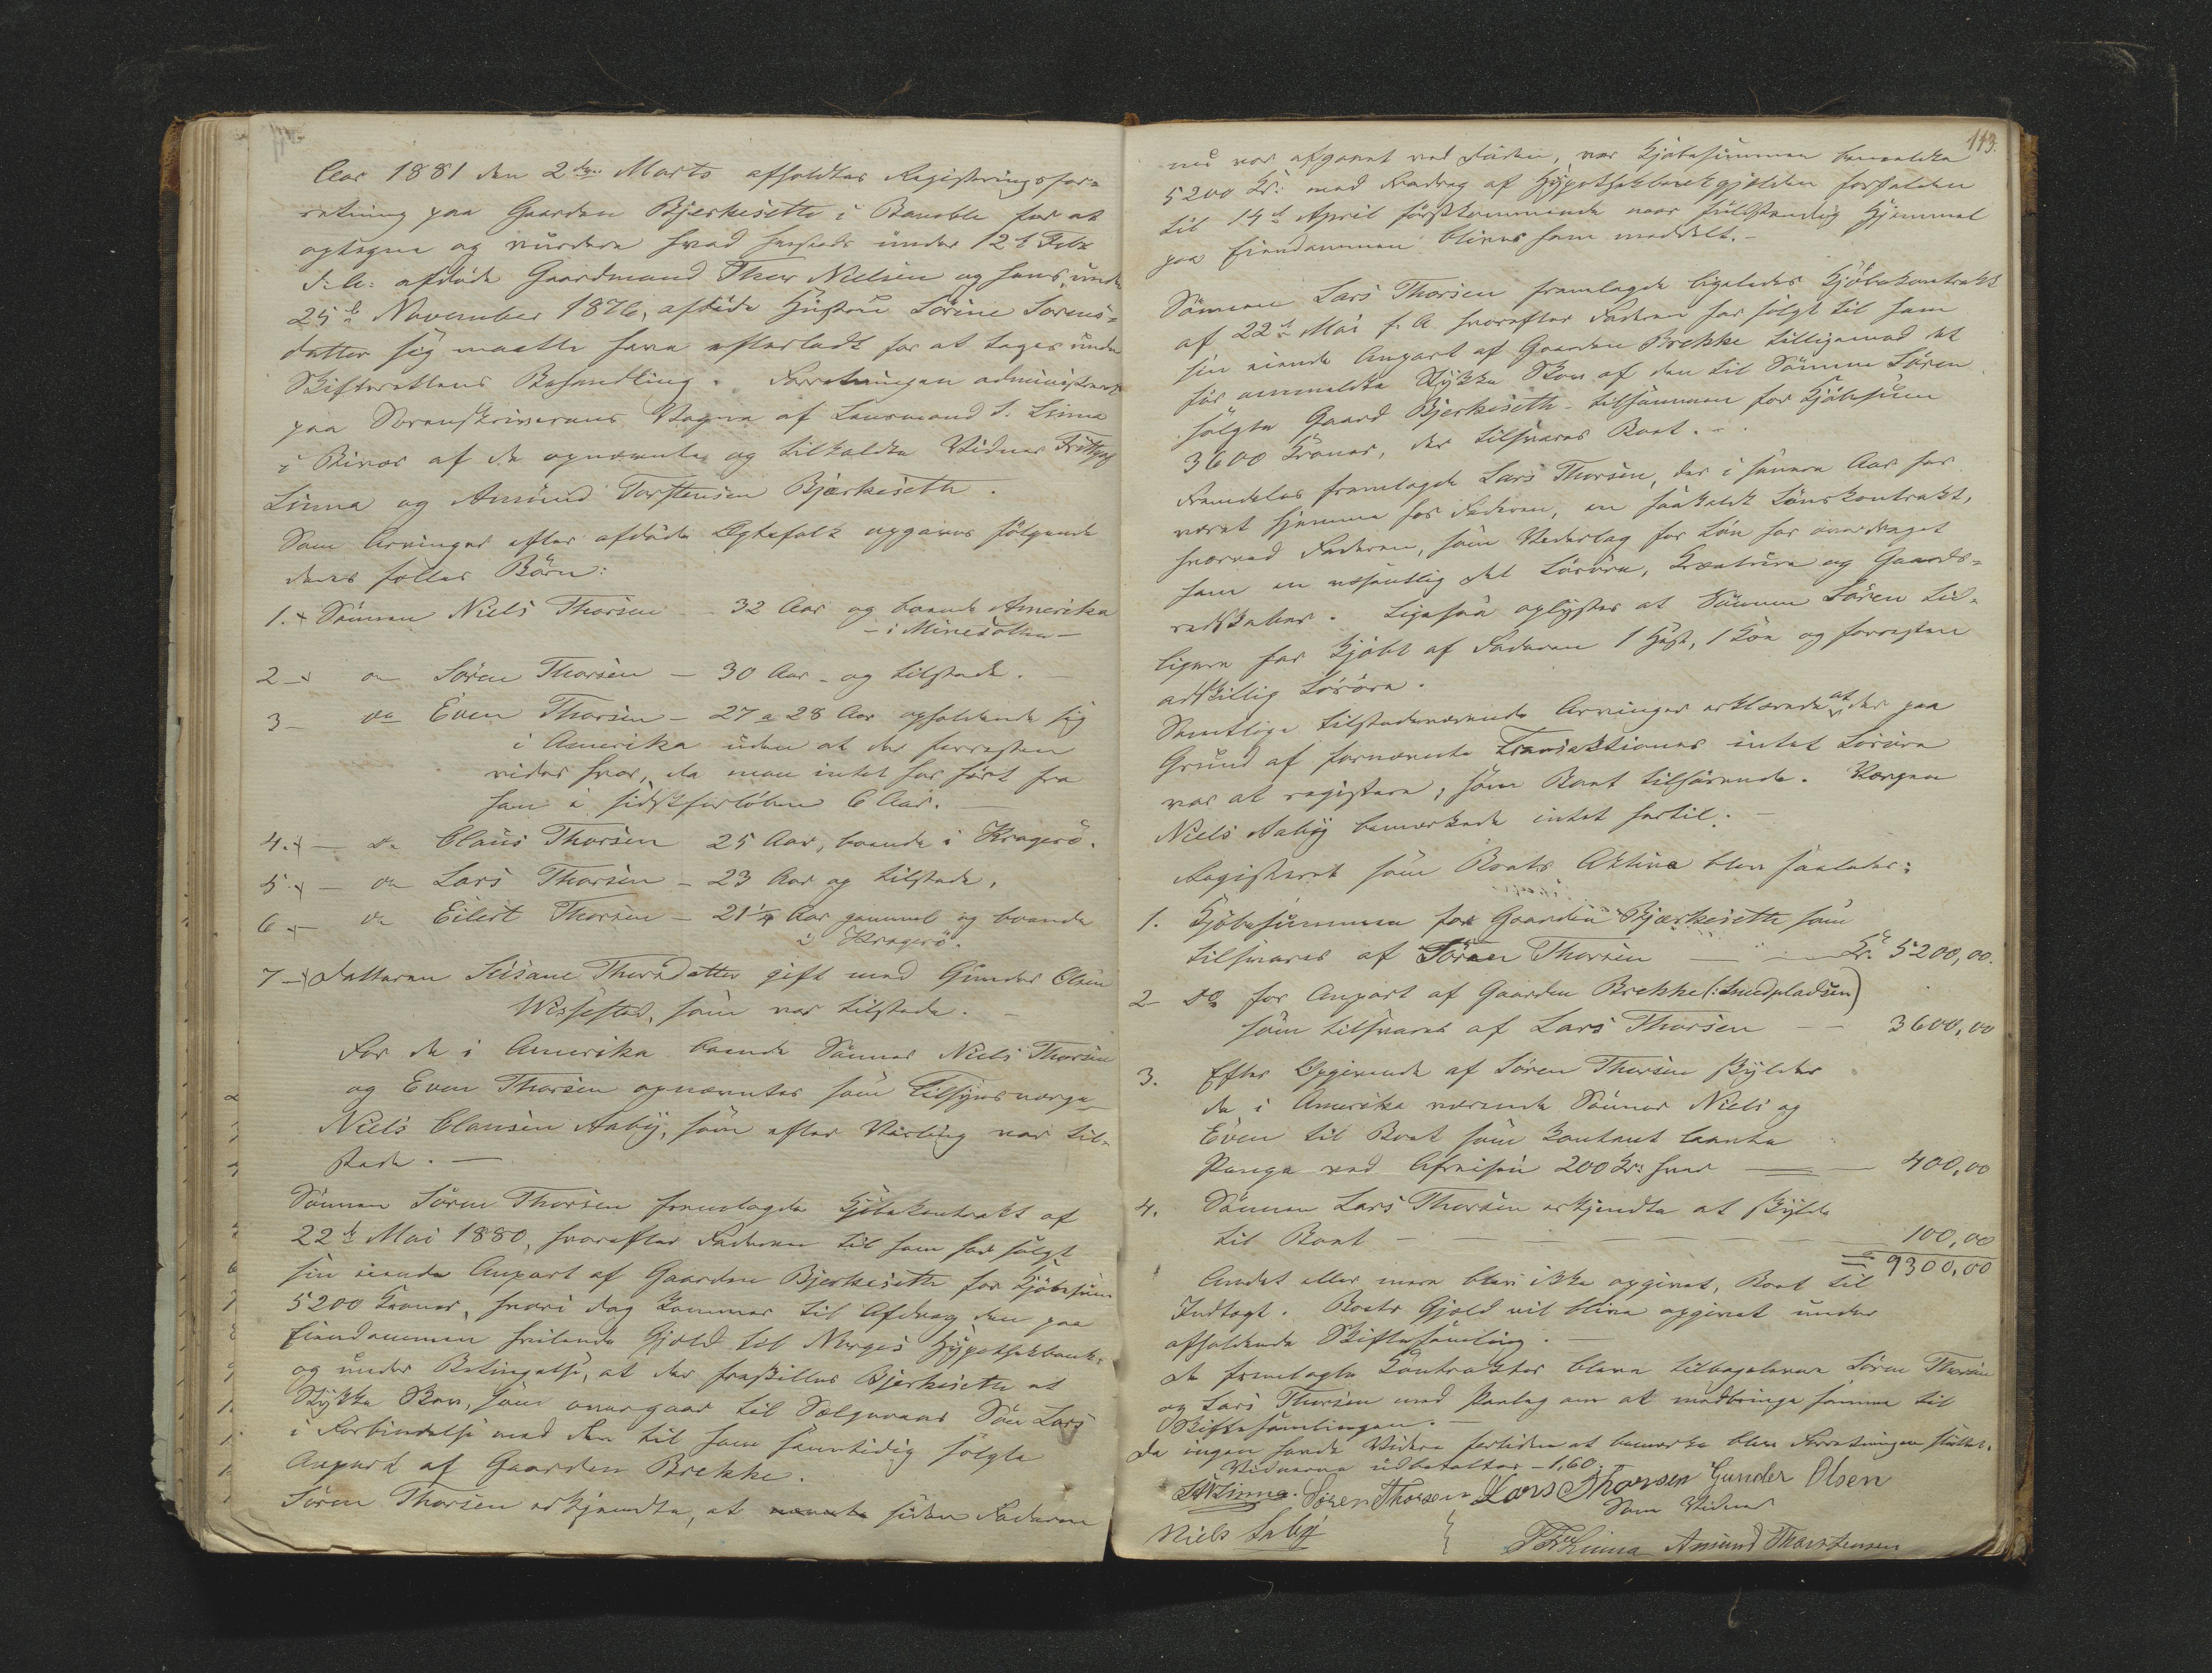 Aar 1881 den 2den Marts afholdtes Registreringsfor-
retning paa Gaarden Bjerkeseth i Bamble for at
optegne og vurdere hvad herfrads under 12t Febr
d. A. afdøde Gaardmand Thor Nielsen og hans, under
25de November 1876, afdøde Hustru Sørine Sørens-
datter sig maatte have efterladt for at tages under
Skifterettens Behandling. Forretningen administrert
paa Sorenskriverens Vegne af Lensmand S. Linna
i Bivær af de opnævnte og tilkaldte Vidner Frithjof
Linna og Amund Torstensen Bjerkeseth.
Som Arvinger efter afdøde Egtefolk opgaves følgende
deres fælles Børn:
1. Sønnen Niels Thorsen - 32 Aar og boende Amerika
- i Minesotta -
2 - do Søren Thorsen - 30 Aar - og tilstede.
3 - do Even Thorsen - 27 a 28 Aar opholdende sig
i Amerika uden at der forresten
vides hvor, da man intet har hørt fra
ham i sidstforløbne 6 Aar.
4. - do Claus Thorsen 25 Aar, boende i Kragerø.
5. - do Lars Thorsen - 23 Aar og tilstede.
6 - do Eilert Thorsen - 21 1/4 Aar gammel og boende
i Kragerø.
7 - Datteren Susane Thorsdatter gift med Gunder Olsen
Wissestad, som var tilstede.
For de i Amerika boende Sønner Niels Thorsen
og Even Thorsen opnævntes som Tilsynsværge
Niels Clausen Aaby, som efter Varsling var til-
stede.
Sønnen Søren Thorsen fremlagde Kjøbekontrakt af
22de Mai 1880, hvorefter Faderen til ham har solgt
sin eiende Anpart af Gaarden Bjerkeseth for Kjøbesum
5200 Kroner, hvori dog kommer til Afdrag den paa
Eiendommen heftende Gjæld til Norges Hypothekbank
og under Betingelse, at der fraskilles Bjerkeseth et
Stykke Skov, som overgaar til Sælgerens Søn Lars
i Forbindelse med den til ham samtidig solgte
Anpart af Gaarden Brekke.
Søren Thorsen erkjendte, at siden Faderen
113.
nu var afgaaet ved Døden, var Kjøbesummen bemeldte
5200 Kr. med Fradrag af Hypothekbankgjælden forfalden
til 14de April førstkommende naar fuldstændig Hjemmel
paa Eiendommen blives ham meddelt.
Sønnen Lars Thorsen fremlagde ligeledes Kjøbekontrakt
af 22de Mai f. A. hvorefter Faderen har solgt til ham
sin eiende Anpart af Gaarden Brekke tilligemed det
før ommeldte Stykke Skov af den til Sønnen Søren
solgte Gaard Bjerkeseth - tilsammen for Kjøbesum
3600 Kroner, der tilsvares Boet.
Fremdeles fremlagde Lars Thorsen, der i senere Aar har
været hjemme hos Faderen, en saakaldt Lønskontrakt,
hvorved Faderen, som Vederlag for Løn har overdraget
ham en væsentlig Del Løsøre, Kreaturer og Gaards-
redskaber. Ligesaa oplystes at Sønnen Søren tid-
ligere har kjøbt af Faderen 1 Hest, 1 Ko og forresten
adskillig Løsøre.
Samtlige tilstedeværende Arvinger erklærede at der paa
Grund af fornævnte Transaktioner intet Løsøre
var at registrere, som Boet tilhørende. Værgen
Niels Aaby bemærkede intet hertil.
Registeret som Boets Aktiva blev saaledes:
1. Kjøbesummen for Gaarden Bjerkeseth som
tilsvares af Søren Thorsen - Kr. 5200,00.
2 Do for Anpart af Gaarden Brekke (: Smedpladsen)
som tilsvares af Lars Thorsen - 3600,00
3. Efter Opgivende af Søren Thorsen skylder
de i Amerika værende Sønner Niels og
Even til Boet som kontant laante
Penge ved Afreisen 200 Kr. hver - 400,00
4. Sønnen Lars Thorsen erkjendte at skylde
til Boet - 100,00
= 9300,00
Andet eller mere blev ikke opgivet, Boet til
Indtægt. Boets Gjæld vil blive opgivet under
afholdende Skiftesamling.
De fremlagte Kontrakter bleve tilbageleveret Søren Thorsen
og Lars Thorsen med Paalæg om at medbringe samme til
Skiftesamlingen.
Da ingen havde Videre fortiden at bemærke blev Forretningen sluttet.
Vidnerne udbetaltes - 1,60.
S Linna. Søren Thorsen Lars Thorsen Gunder Olsen
Som Vidner
Niels Aabÿ
Fr Linna Amund Thorstensen